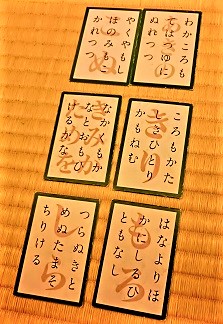 わかころも
てはつゆに
ぬれつつ
やくやもし
ほのみもこ
かれつつ
ころもかた
しきひとり
かもねむ
きり
なかくもか
なとおもひ
けるかな
はなよりほ
かにしるひ
ともなし
もろ
つらぬきと
めぬたまそ
ちりける
しら